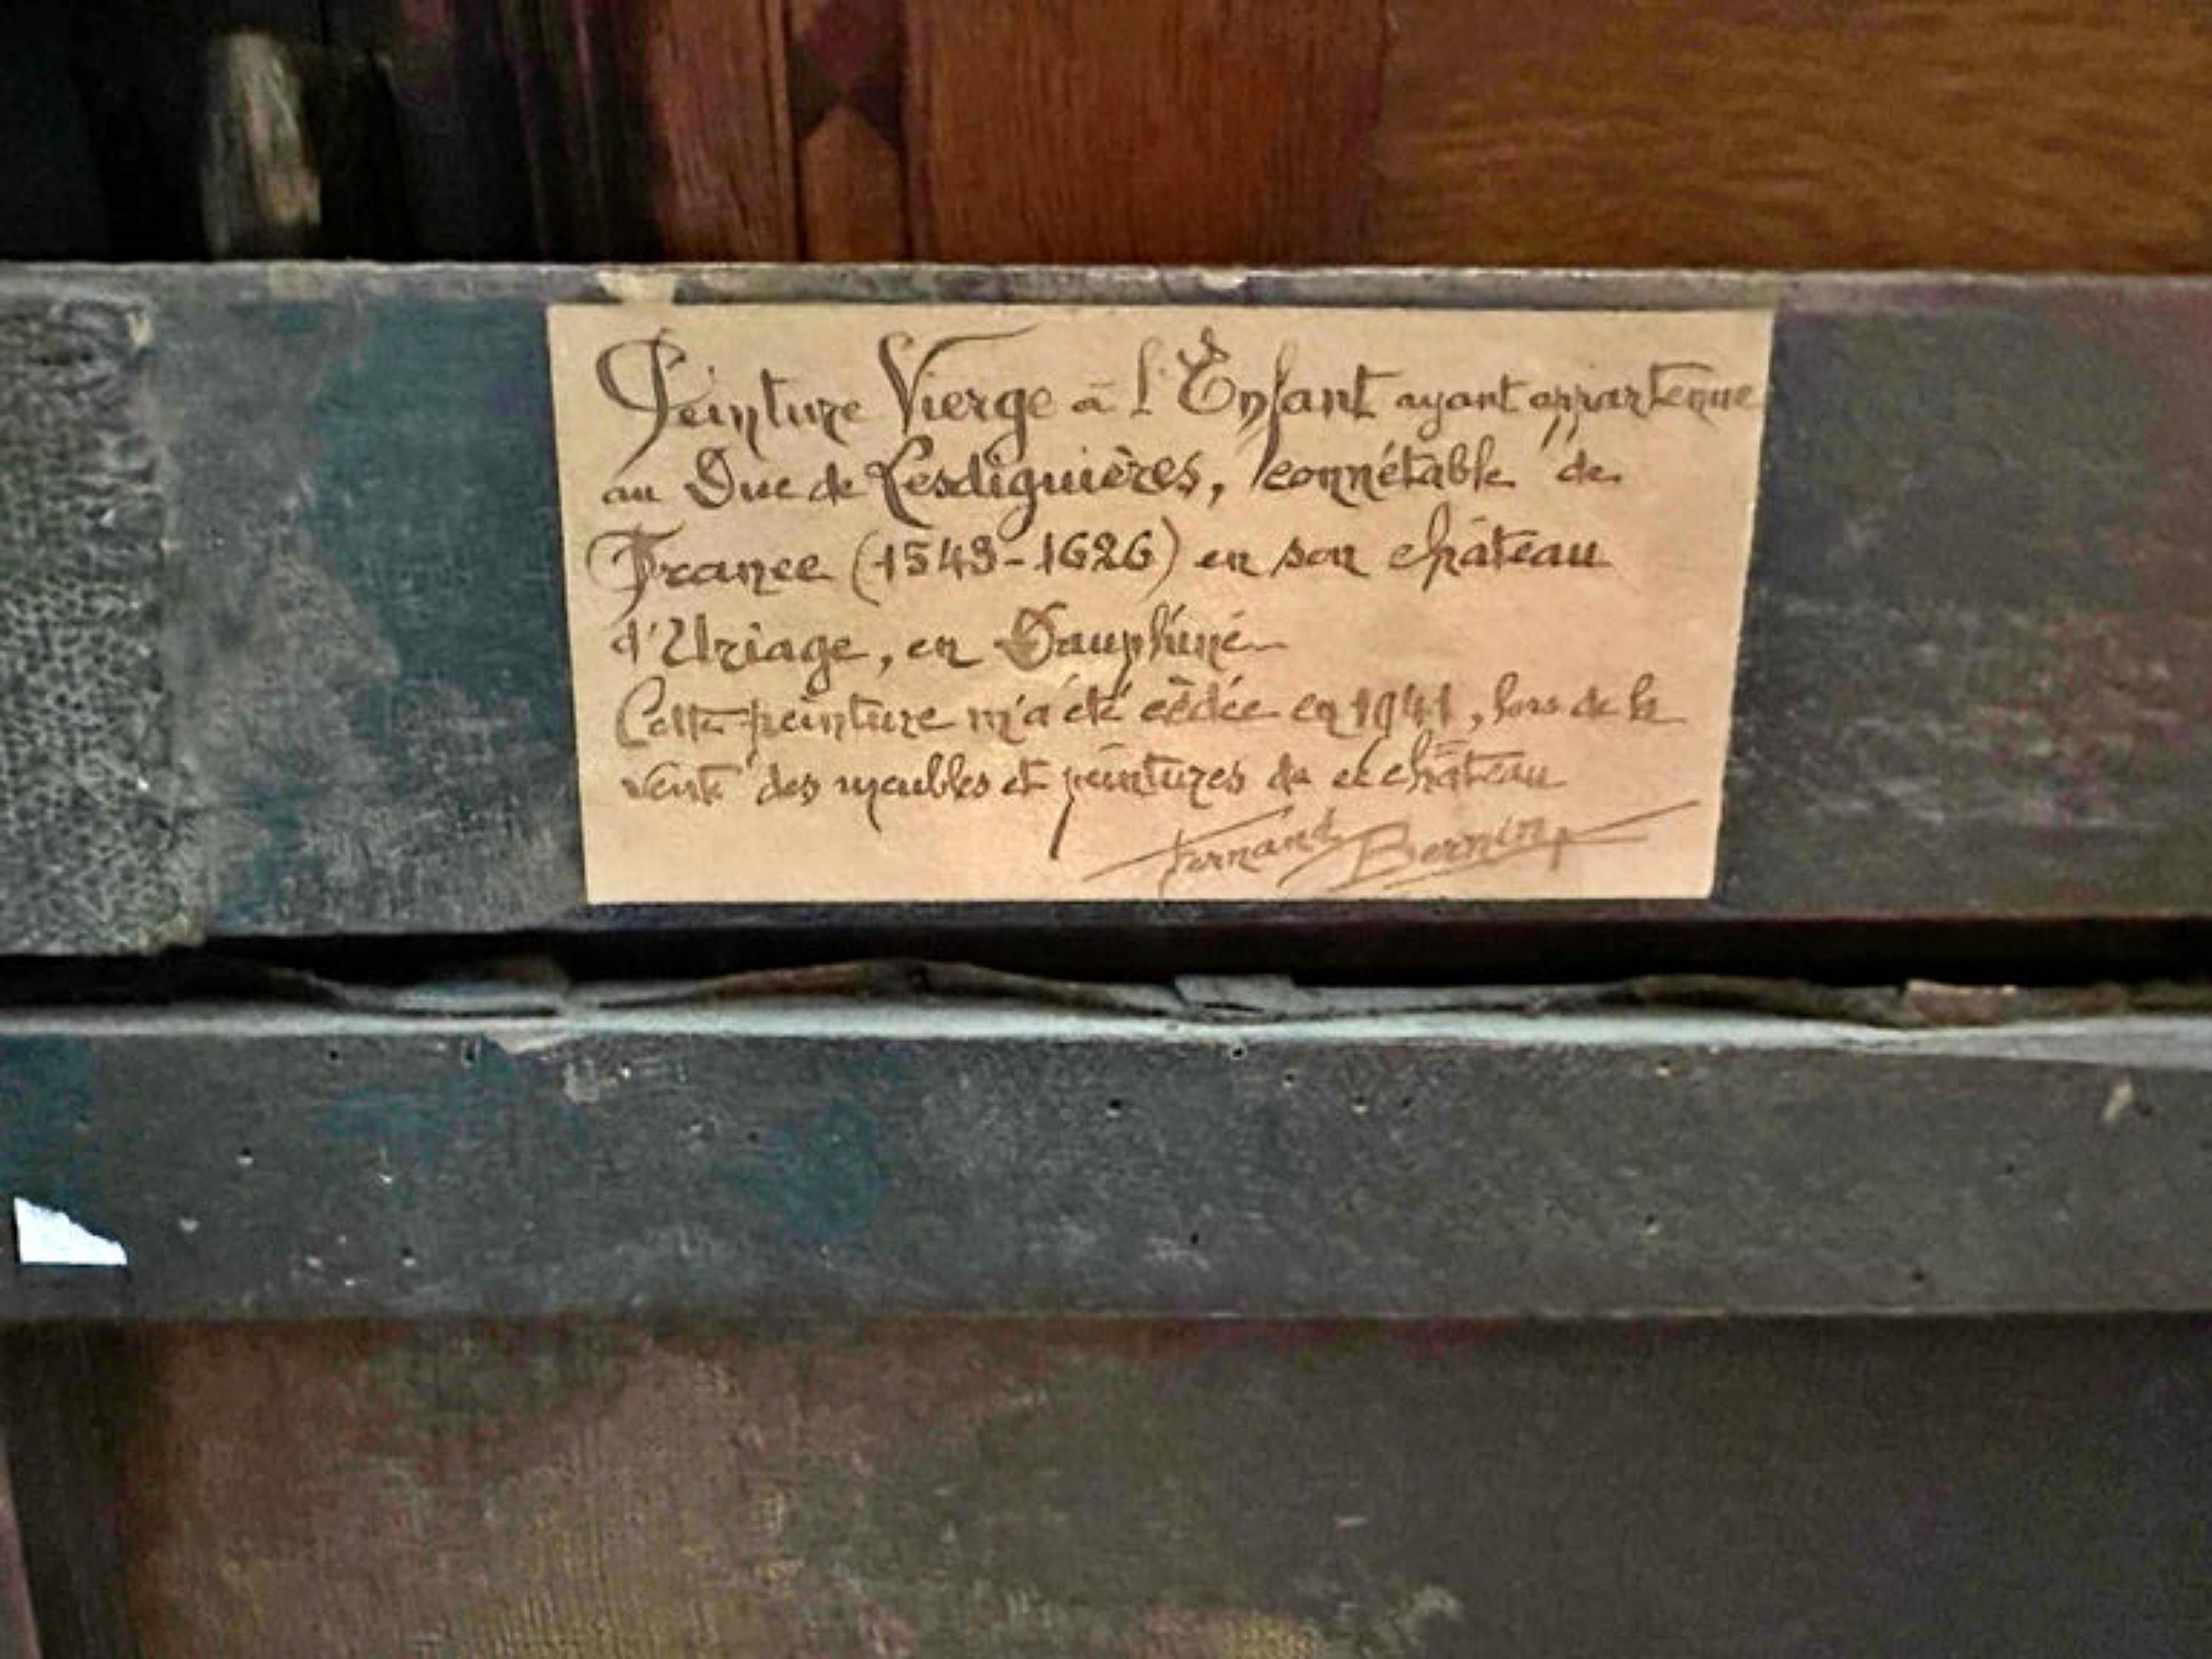 Peinture Vierge à l'Enfant ayant appartenue
au Duc de Lesdiguières, connétable de
France (1543-1626) en son château
d'Uriage, en Dauphiné
Cette peinture m'a été cèdée en 1941, lors de la
vente des meubles et peintures de ce château
Fernand Bernin